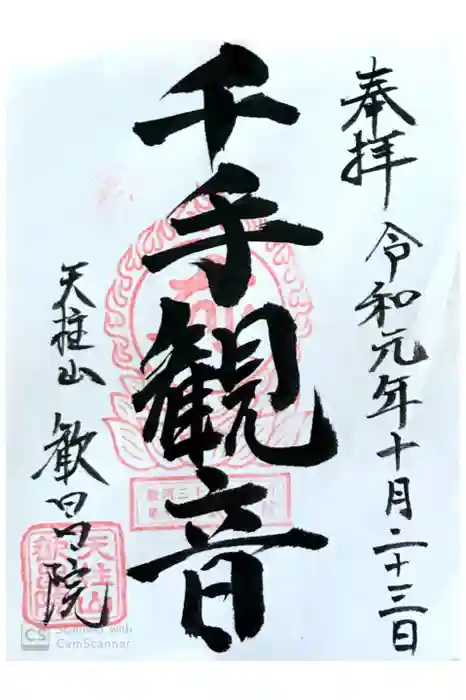 奉拝 令和元年十月二十三日
千手観音
天柱山 歓昌院
CS Scanned with
CamScanner